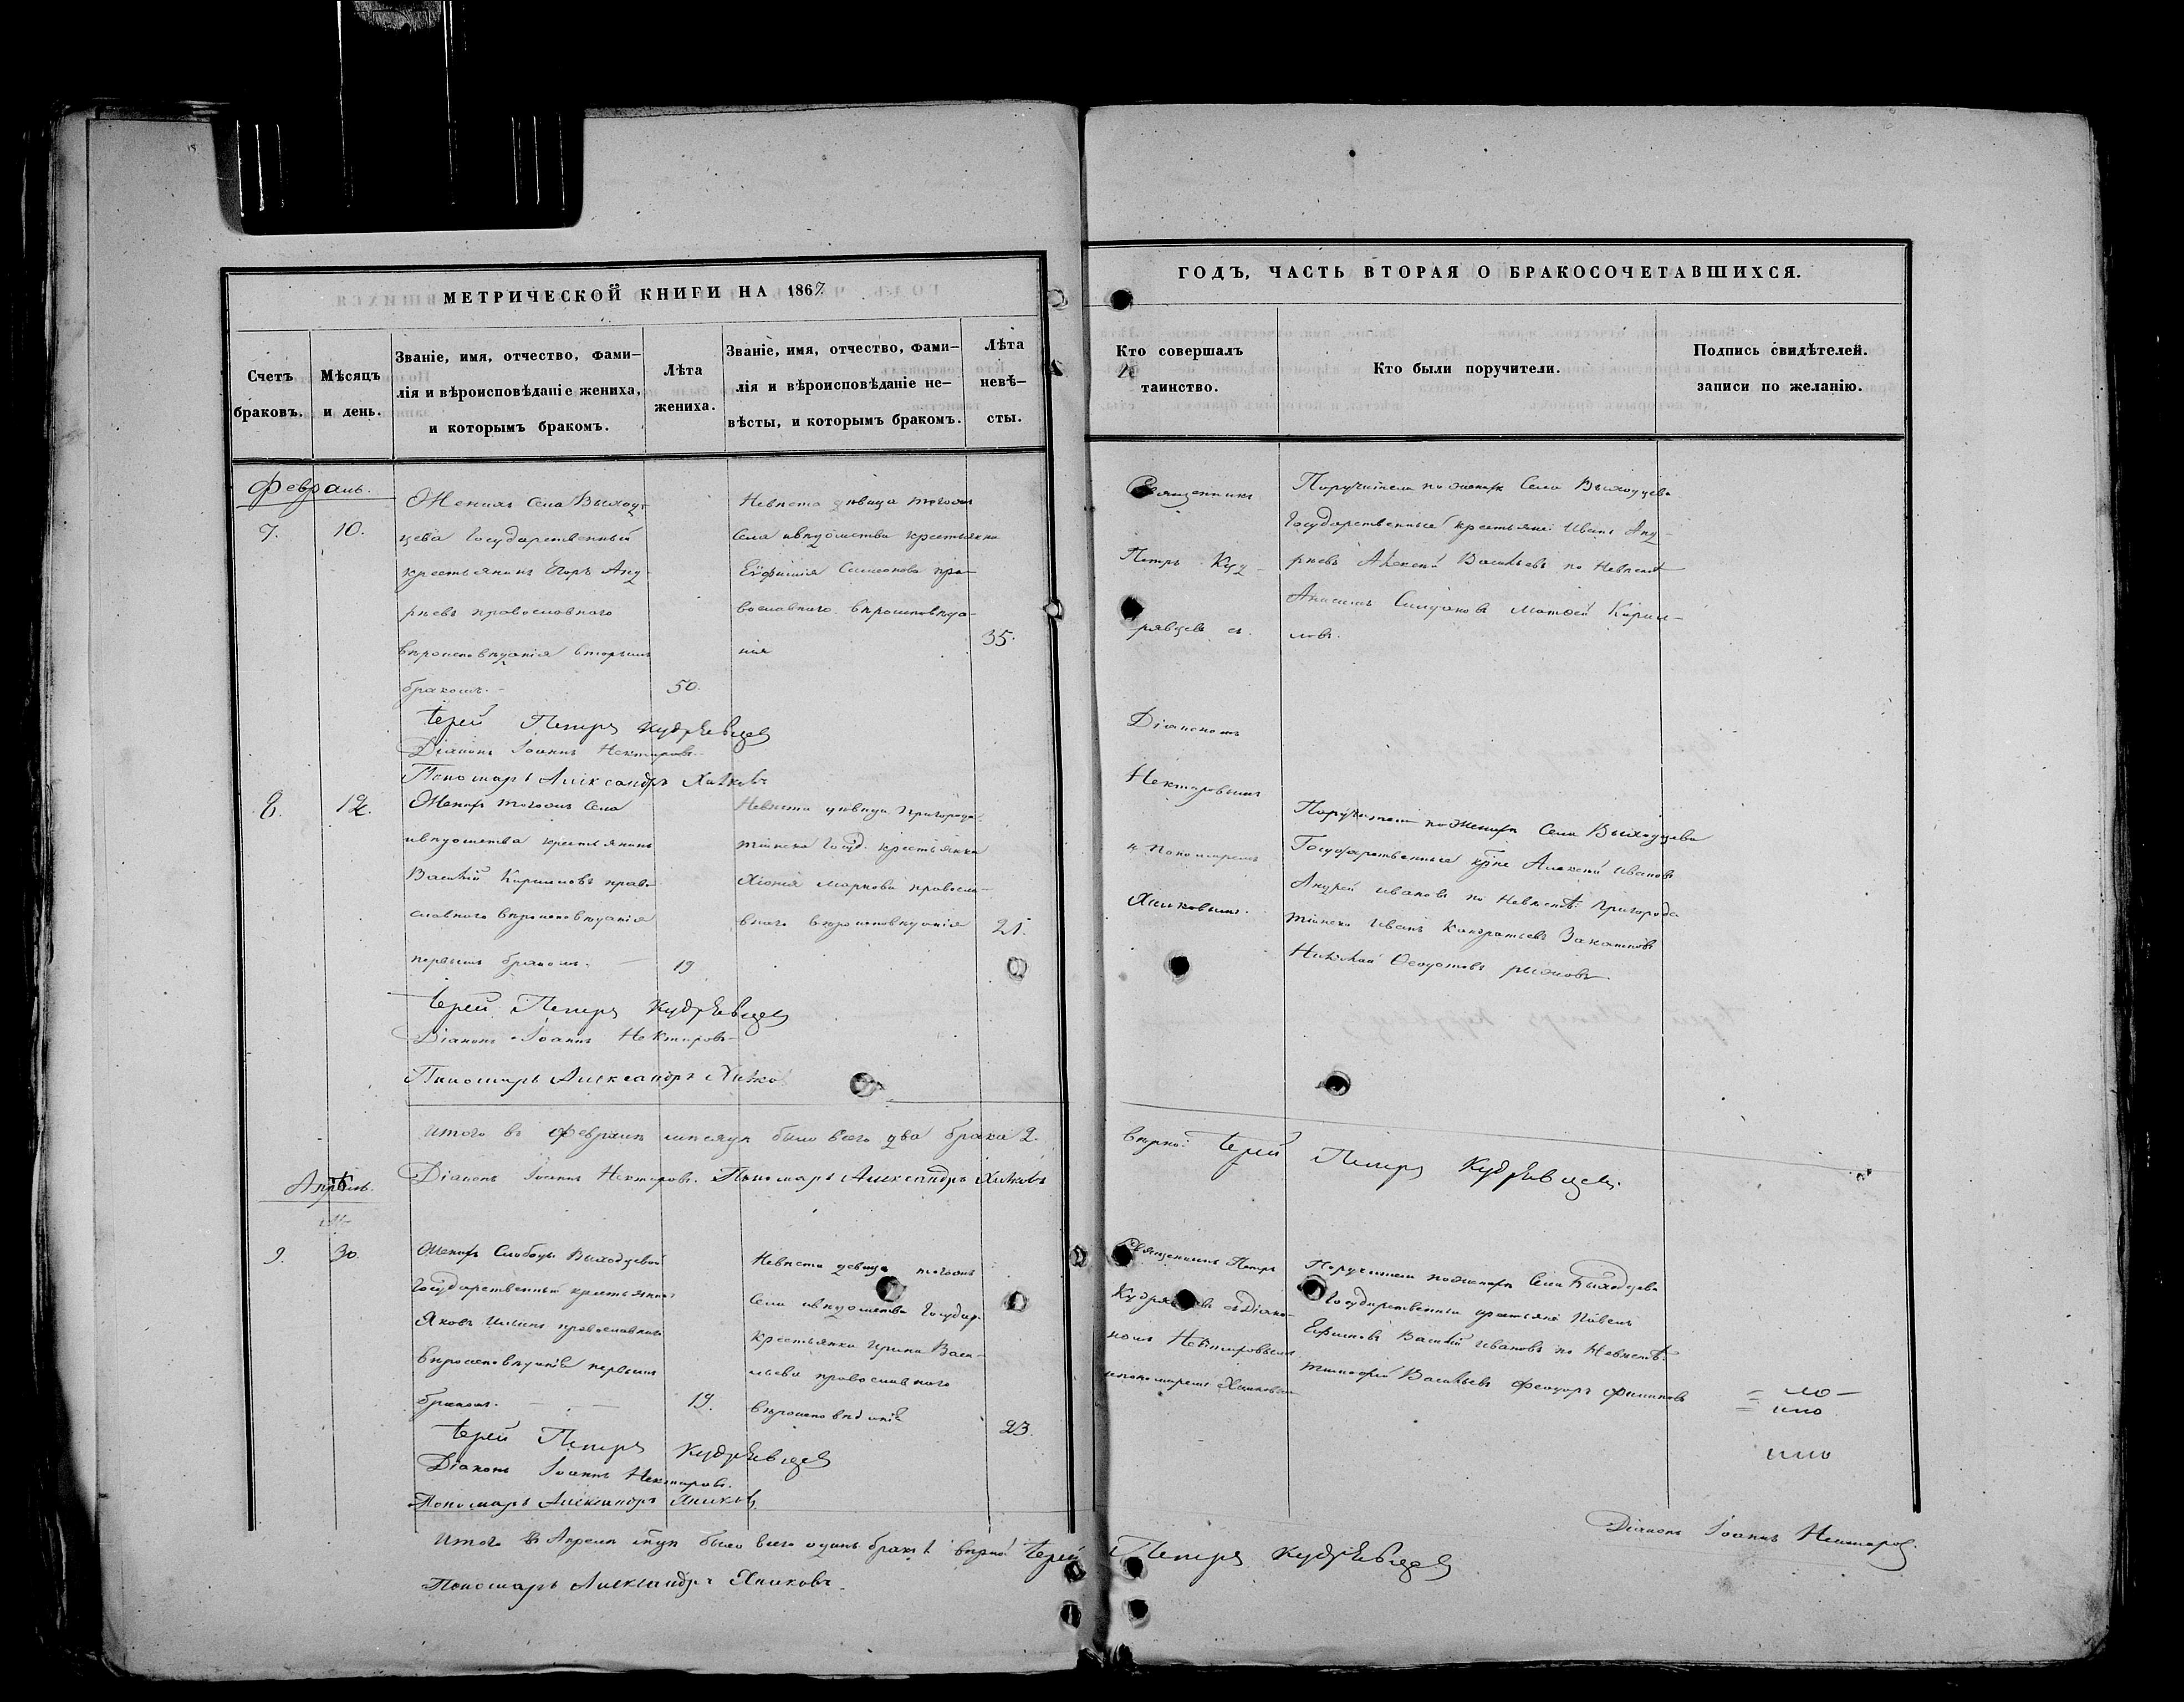 МЕТРИЧЕСКОЙ КНИГИ НА 1867.
Счетъ браковъ.
Мѣсяцъ и день.
Званіе, имя, отчество, фами-
лія и вѣроисповѣданіе жениха,
и которымъ бракомъ.
Лѣта жениха.
Званіе, имя, отчество, фами-
лія и вѣроисповѣданіе не-
вѣсты, и которымъ бракомъ.
Лѣта невѣ-
сты.
Февраль.
7.
10.
Женихъ Села Выход-
цева Государственный
крестьянинъ Егоръ Анд-
рѣевъ православнаго
вѣроисповѣданія вторымъ
бракомъ.
50.
Невѣста дѣвица тогожъ
Села и вѣдомства крестьянка
Симеонова пра-
вославнаго вѣроисповѣда-
нія
35.
Іерей Петръ Кудрявцевъ
Діаконъ Іоаннъ Нектаровъ
Пономарь Александръ
8.
12.
Женихъ тогожъ Села
и вѣдомства крестьянинъ
Василій Кириловъ право-
славнаго вѣроисповѣданія
первымъ бракомъ.
19
Невѣста дѣвица Пригорода
Тіинска Госуд. крестьянка
Хіонія Маркова правосла-
внаго вѣроисповѣданія
21.
Іерей Петръ Кудрявцевъ
Діаконъ Іоаннъ Нектаровъ
Пономарь Александръ
Итого въ Февралѣ мѣсяцѣ было всего два брака 2.
Діаконъ Іоаннъ Нектаровъ. Пономарь Александръ
Апрѣль.
9.
30.
Женихъ Слободы Выходцевой
Государственный крестьянинъ
Яковъ Ильинъ православнаго
вѣроисповѣданія первымъ
бракомъ.
19.
Невѣста девица тогожъ
Села и вѣдомства Государ.
Крестьянка Ирина Васи-
льева православнаго
вѣроисповѣданія
23.
Іерей Петръ Кудрявцевъ
Діаконъ Іоаннъ Нектаровъ.
Пономарь Александръ
Итого въ Апрелѣ было всего одинъ бракъ 1. вѣрно: Іерей
Пономарь Александръ
ГОДЪ, ЧАСТЬ ВТОРАЯ О БРАКОСОЧЕТАВШИХСЯ.
Кто совершалъ
таинство.
Кто были поручители.
Подпись свидѣтелей.
записи по желанію.
Священникъ
Петръ Куд-
рявцев съ
Діакономъ
Нектаровымъ
и Пономаремъ
Поручители по женихѣ Села Выходцева
Государственные крестьяне Иванъ Анд-
рѣевъ Алексей Васильевъ по Невѣстѣ
Матвей Кирил-
ловъ.
Поручители по Женихѣ Села Выходцева
Государственные Алексей Ивановъ
Андрей Ивановъ по Невѣстѣ: Пригорода
Тіинска Иванъ Кондратьевъ
Николай
вѣрно: Іерей Петръ Кудрявцевъ.
Священникъ Петръ
Кудрявцевъ съ Діако-
номъ Нектаровымъ
и пономаремъ
Поручители по женихѣ Села Выходцева
Государственные крестьяне Павелъ
Ефимовъ Василій Ивановъ по Невѣстѣ
Тимофей Васильевъ Феодоръ Филиповъ
Петръ Кудрявцевъ
Діаконъ Іоаннъ Нектаровъ.